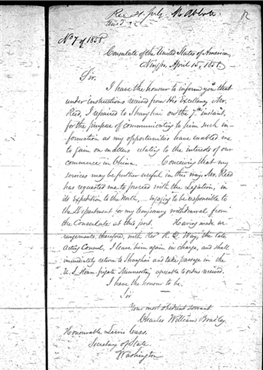 Rec 21 July Mr Abbott
No 7 of 1858.
Consulate of the United States of America,
Ningpo April 15, 1858.
Sir.
I have the honour to inform you that
under instructions received from His Excellency Mr.
Reed, I repaired to Shanghai on the 7th instant,
for the purpose of communicating to him such in-
formation as my opportunities have enabled me
to gain on matters relating to the interests of our
commerce in China. Conceiving that my
services may be further useful in this way, Mr. Reed
has requested me to proceed with the Legation, in
its expedition to the North, engaging to be responsible to
the Department for my temporary withdrawal from
the Consulate at this port. Having made ar-
rangements, therefore, with Rev. R. Q. Way, the late
Acting Consul, I leave him again in charge, and shall
immediately return to Shanghai and take passage in the
U. S. Steam frigate Minnesota, agreeable to orders received.
I have the honour to be,
Sir
Your most obedient servant
Charles William Bradley
Honourable Lewis Cass,
Secretary of State,
Washington